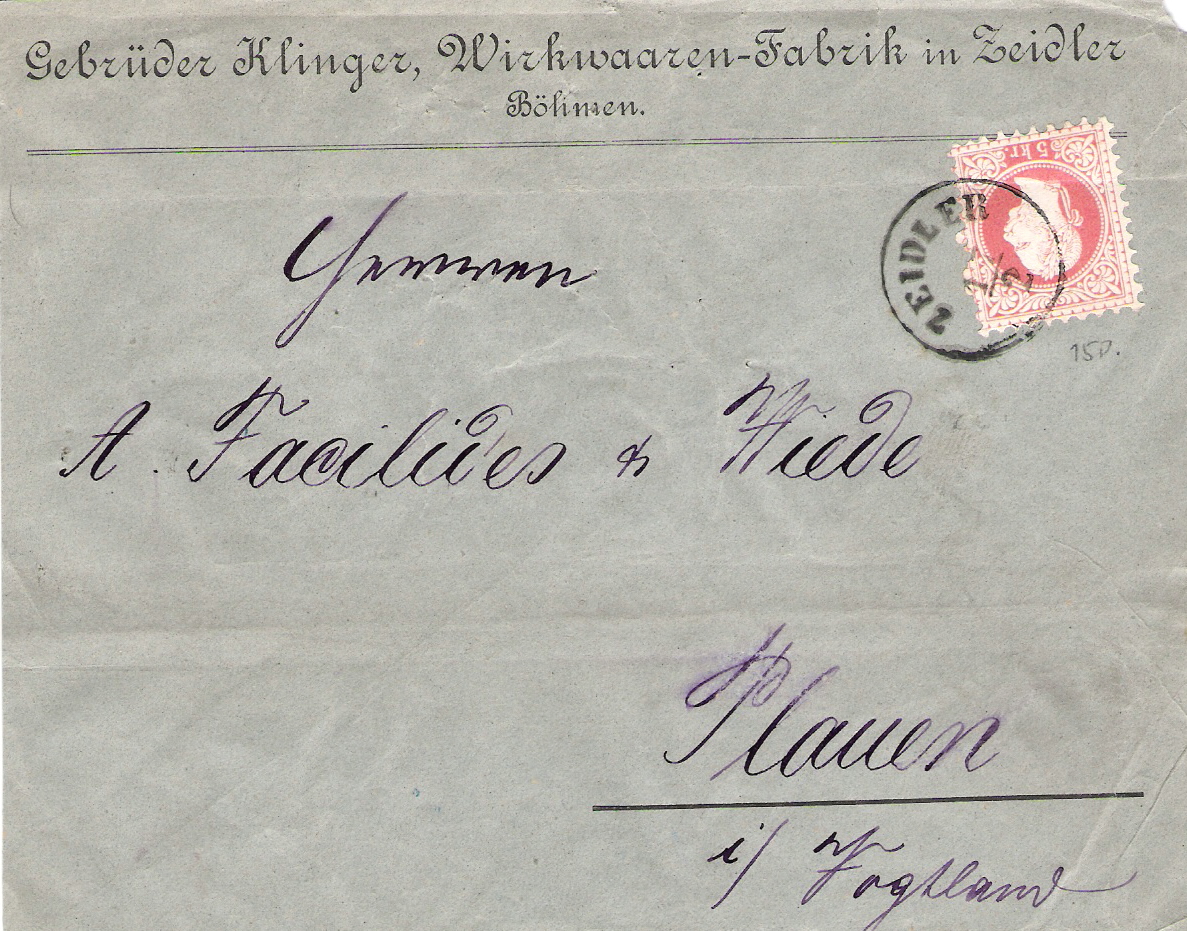 Gebrüder Klinger, Wirkwaaren-Fabrik in Zeidler
Böhmen.
5 kr.
ZEIDLER
Herrren
A. Facilides & Wiede
15D.
Plauen
i/ Vogtland